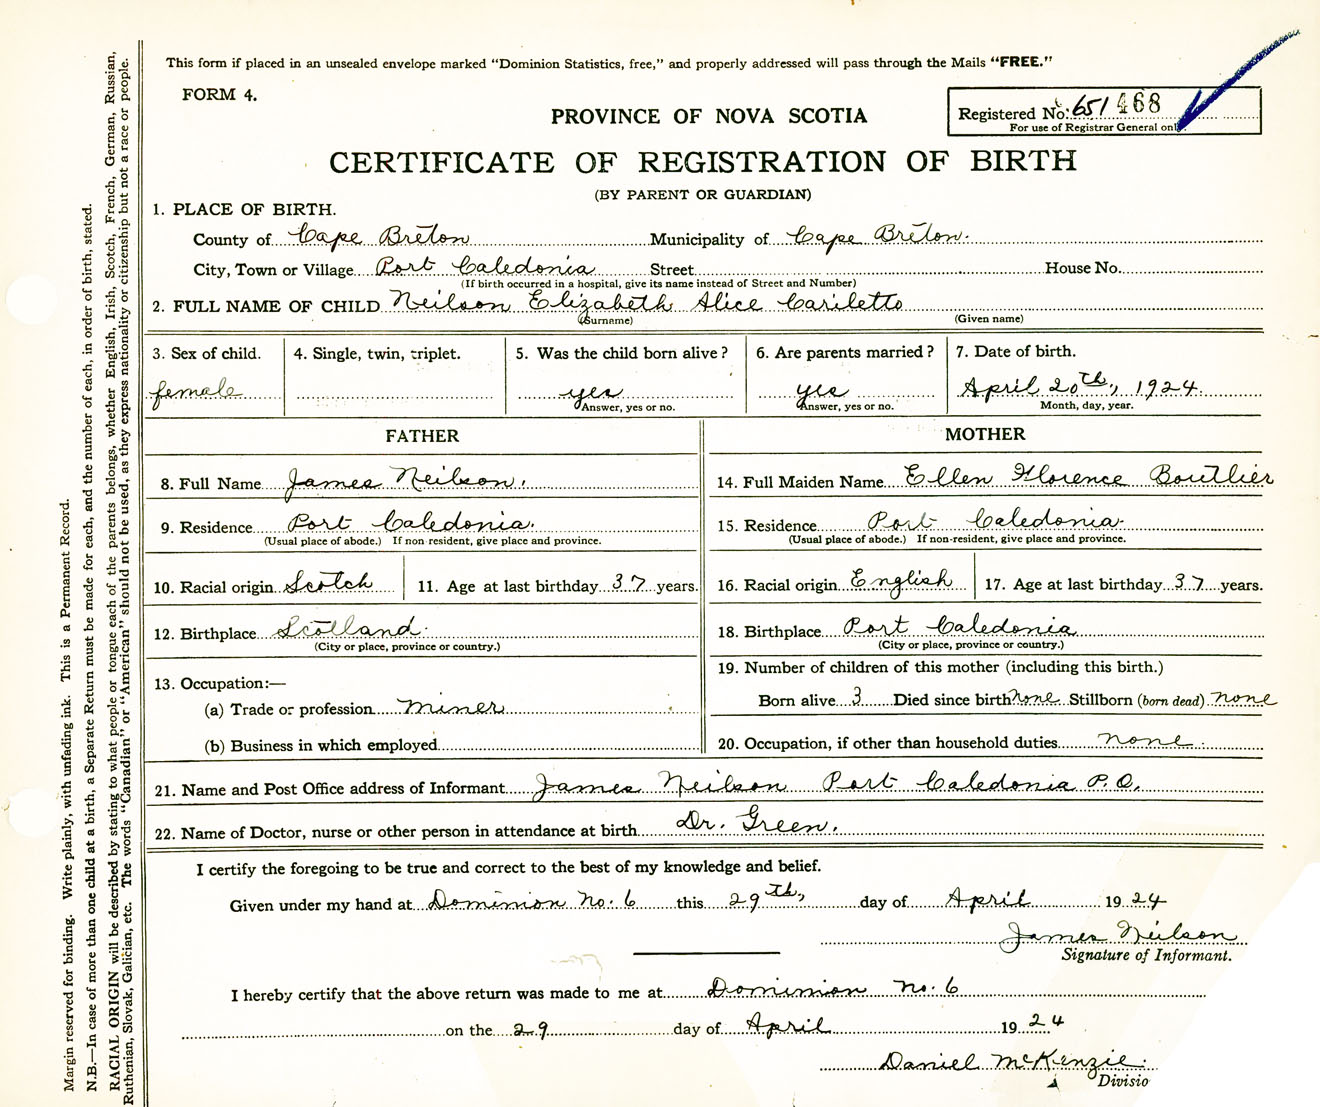 This form if placed in an unsealed envelope marked "Dominion Statistics, free," and properly addressed will pass through the Mails "FREE."
FORM 4.
PROVINCE OF NOVA SCOTIA
Registered No. 651468
For use of Registrar General only.
CERTIFICATE OF REGISTRATION OF BIRTH
(BY PARENT OR GUARDIAN)
1. PLACE OF BIRTH.
County of Cape Breton Municipality of Cape Breton.
City, Town or Village Port Caledonia Street House No.
(If birth occurred in a hospital, give its name instead of Street and Number)
2. FULL NAME OF CHILD Neilson Elizabeth Alice Cariletto
(Surname) (Given name)
3. Sex of child. 4. Single, twin, triplet. 5. Was the child born alive? 6. Are parents married? 7. Date of birth.
female yes yes April 20th, 1924.
Answer, yes or no. Answer, yes or no. Month, day, year.
FATHER MOTHER
8. Full Name James Neilson. 14. Full Maiden Name Ellen Florence Boutlier
9. Residence Port Caledonia. 15. Residence Port Caledonia.
(Usual place of abode.) If non-resident, give place and province. (Usual place of abode.) If non-resident, give place and province.
10. Racial origin Scotch 11. Age at last birthday 37 years. 16. Racial origin English 17. Age at last birthday 37 years.
12. Birthplace Scotland. 18. Birthplace Port Caledonia
(City or place, province or country.) (City or place, province or country.)
19. Number of children of this mother (including this birth.)
13. Occupation:—
Born alive 3 Died since birth none Stillborn (born dead) none
(a) Trade or profession miner
(b) Business in which employed 20. Occupation, if other than household duties none.
21. Name and Post Office address of Informant James Neilson Port Caledonia P.O.
22. Name of Doctor, nurse or other person in attendance at birth Dr. Green.
I certify the foregoing to be true and correct to the best of my knowledge and belief.
Given under my hand at Dominion No. 6 this 29th, day of April 1924
James Neilson
Signature of Informant.
I hereby certify that the above return was made to me at Dominion No. 6
on the 29 day of April 1924
Daniel McKenzie.
Divisio
Margin reserved for binding. Write plainly, with unfading ink. This is a Permanent Record.
N.B.—In case of more than one child at a birth, a Separate Return must be made for each, and the number of each, in order of birth, stated.
RACIAL ORIGIN will be described by stating to what people or tongue each of the parents belongs, whether English, Irish, Scotch, French, German, Russian,
Ruthenian, Slovak, Galician, etc. The words "Canadian" or "American" should not be used, as they express nationality or citizenship but not a race or people.